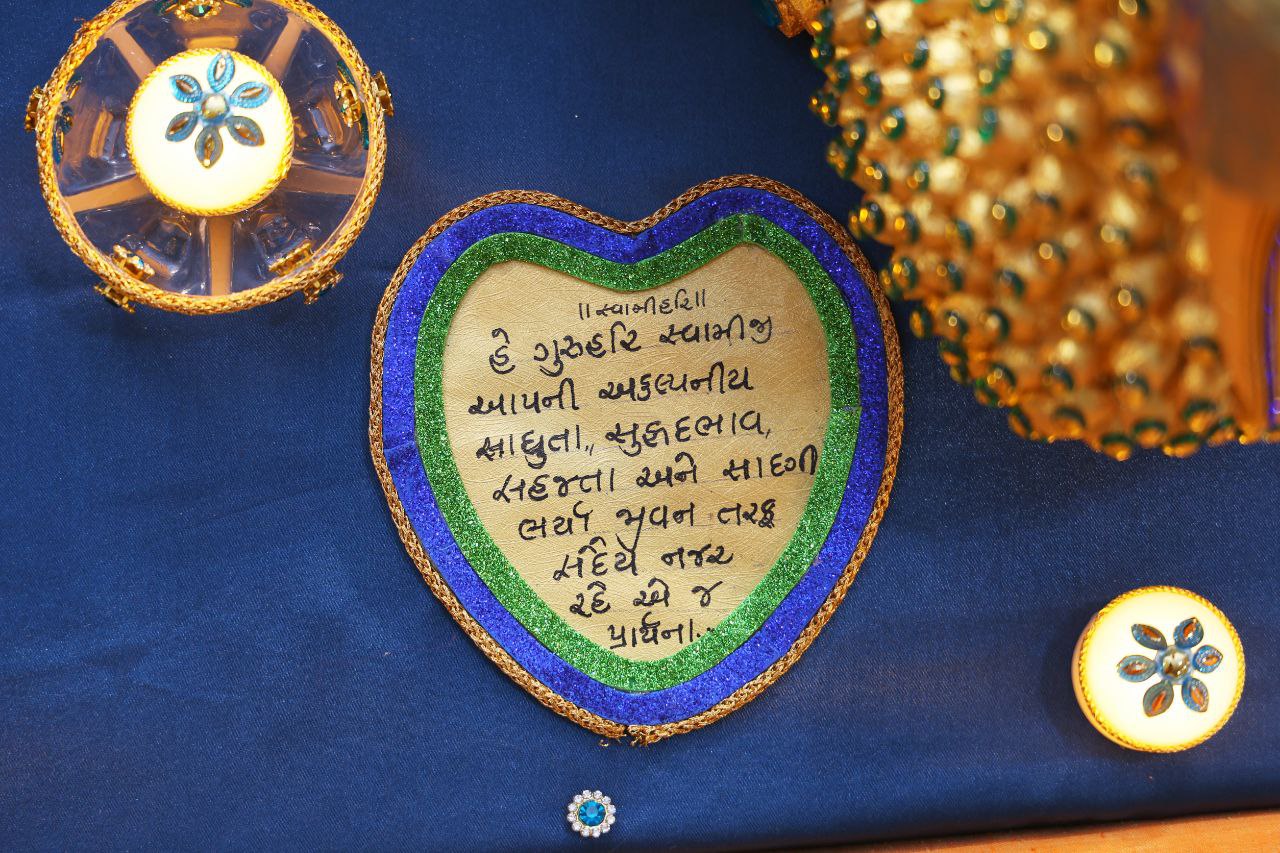 ॥સ્વામીહરિ॥
હે ગુરુહરિ સ્વામીજી
આપની અકલ્પનીય
સાધુતા,, સુહૃદભાવ,
સહજતા અને સાદગી
ભર્યા જીવન તરફ
સદૈવ નજર
રહે એ જ
પ્રાર્થના...